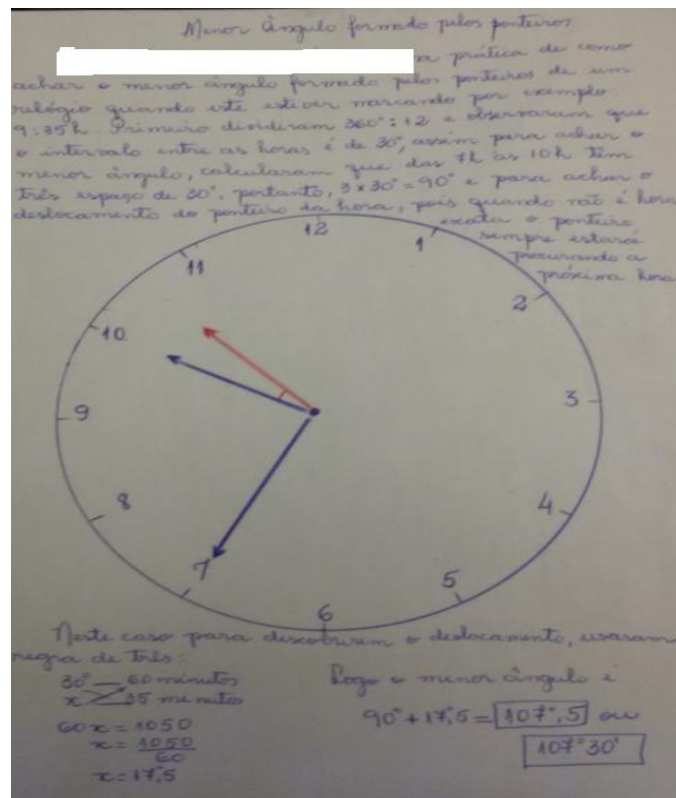 Menor ângulo formado pelos ponteiros
prática de como
achar o menor ângulo formado pelos ponteiros de um
relógio quando este estiver marcando por exemplo
9:35h. Primeiro dividiram 360° : 12 e observaram que
o intervalo entre as horas é de 30°, assim para achar o
menor ângulo, calcularam que das 7h às 10h têm
três espaço de 30°, portanto, 3 x 30° = 90° e para achar o
deslocamento do ponteiro da hora, pois quando não é hora
exata o ponteiro
sempre estará
procurando a
próxima hora
12
1
2
3
4
5
6
7
8
9
10
11
Neste caso para descobrirem o deslocamento, usaram
regra de três:
30° — 60 minutos
x 35 minutos
60x = 1050
x = 1050
60
x = 17°,5
Logo o menor ângulo é
90° + 17°,5 = 107°,5 ou
107°30'